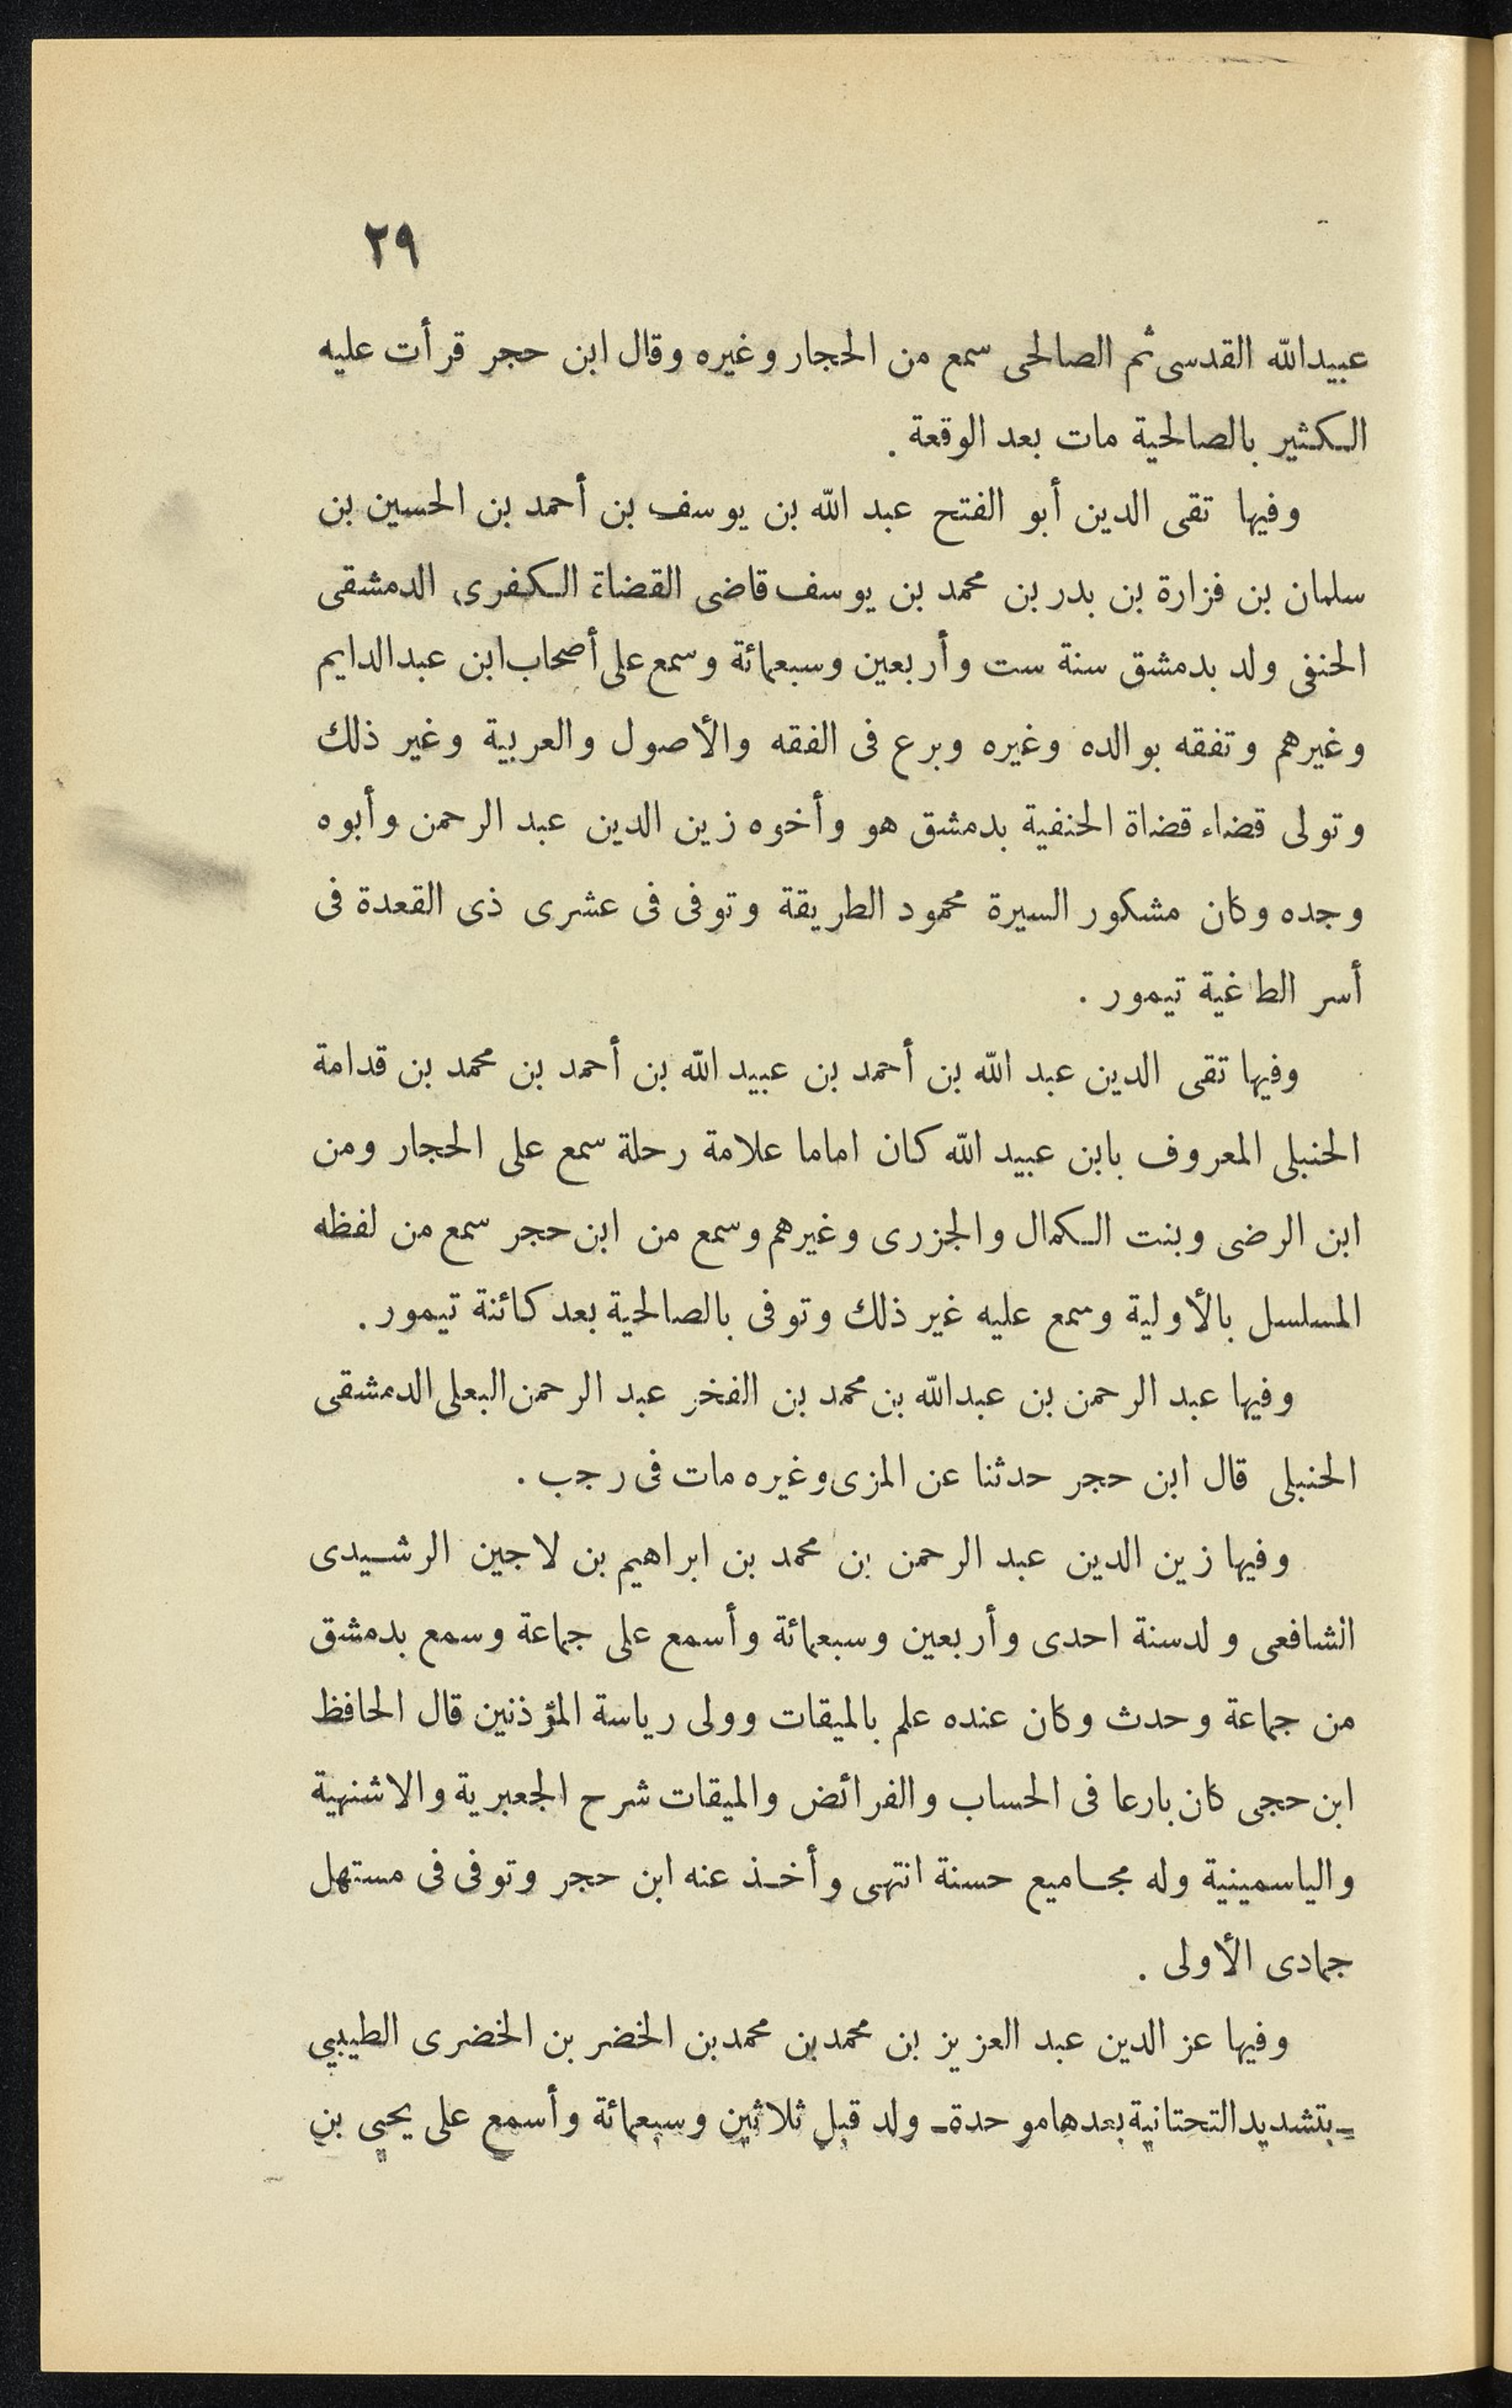 ٢٩
عبيدالله القدسى ثم الصالحى سمع من الحجار وغيره وقال ابن حجر قرأت عليه
الكثير بالصالحية مات بعد الوقعة .
وفيها تقى الدين أبو الفتح عبد الله بن يوسف بن أحمد بن الحسين بن
سلمان بن فزارة بن بدر بن محمد بن يوسف قاضى القضاة الكفرى الدمشقى
الحنفى ولد بدمشق سنة ست وأربعين وسبعمائة وسمع على أصحاب ابن عبدالدايم
وغيرهم وتفقه بوالده وغيره وبرع فى الفقه والأصول والعربية وغير ذلك
وتولى قضاء قضاة الحنفية بدمشق هو وأخوه زين الدين عبد الرحمن وأبوه
وجده وكان مشكور السيرة محمود الطريقة وتوفى فى عشرى ذى القعدة فى
أسر الطاغية تيمور .
وفيها تقى الدين عبد الله بن أحمد بن عبيد الله بن أحمد بن محمد بن قدامة
الحنبلى المعروف بابن عبيد الله كان اماما علامة رحلة سمع على الحجار ومن
ابن الرضى وبنت الكمال والجزرى وغيرهم وسمع من ابن حجر سمع من لفظه
المسلسل بالأولية وسمع عليه غير ذلك وتوفى بالصالحية بعد كائنة تيمور .
وفيها عبد الرحمن بن عبدالله بن محمد بن الفخر عبد الرحمن البعلى الدمشقى
الحنبلى قال ابن حجر حدثنا عن المزى وغيره مات فى رجب .
وفيها زين الدين عبد الرحمن بن محمد بن ابراهيم بن لاجين الرشيدى
الشافعى ولدسنة احدى وأربعين وسبعمائة وأسمع على جماعة وسمع بدمشق
من جماعة وحدث وكان عنده علم بالميقات وولى رياسة المؤذنين قال الحافظ
ابن حجى كان بارعا فى الحساب والفرائض والميقات شرح الجعبرية والاشنهية
والياسمينية وله مجاميع حسنة انتهى وأخذ عنه ابن حجر وتوفى فى مستهل
جمادى الأولى .
وفيها عز الدين عبد العزيز بن محمد بن محمد بن الخضر بن الخضرى الطيبي
ـ بتشديد التحتانية بعدها موحدة ـ ولد قبل ثلاثين وسبعمائة وأسمع على يحيى بن